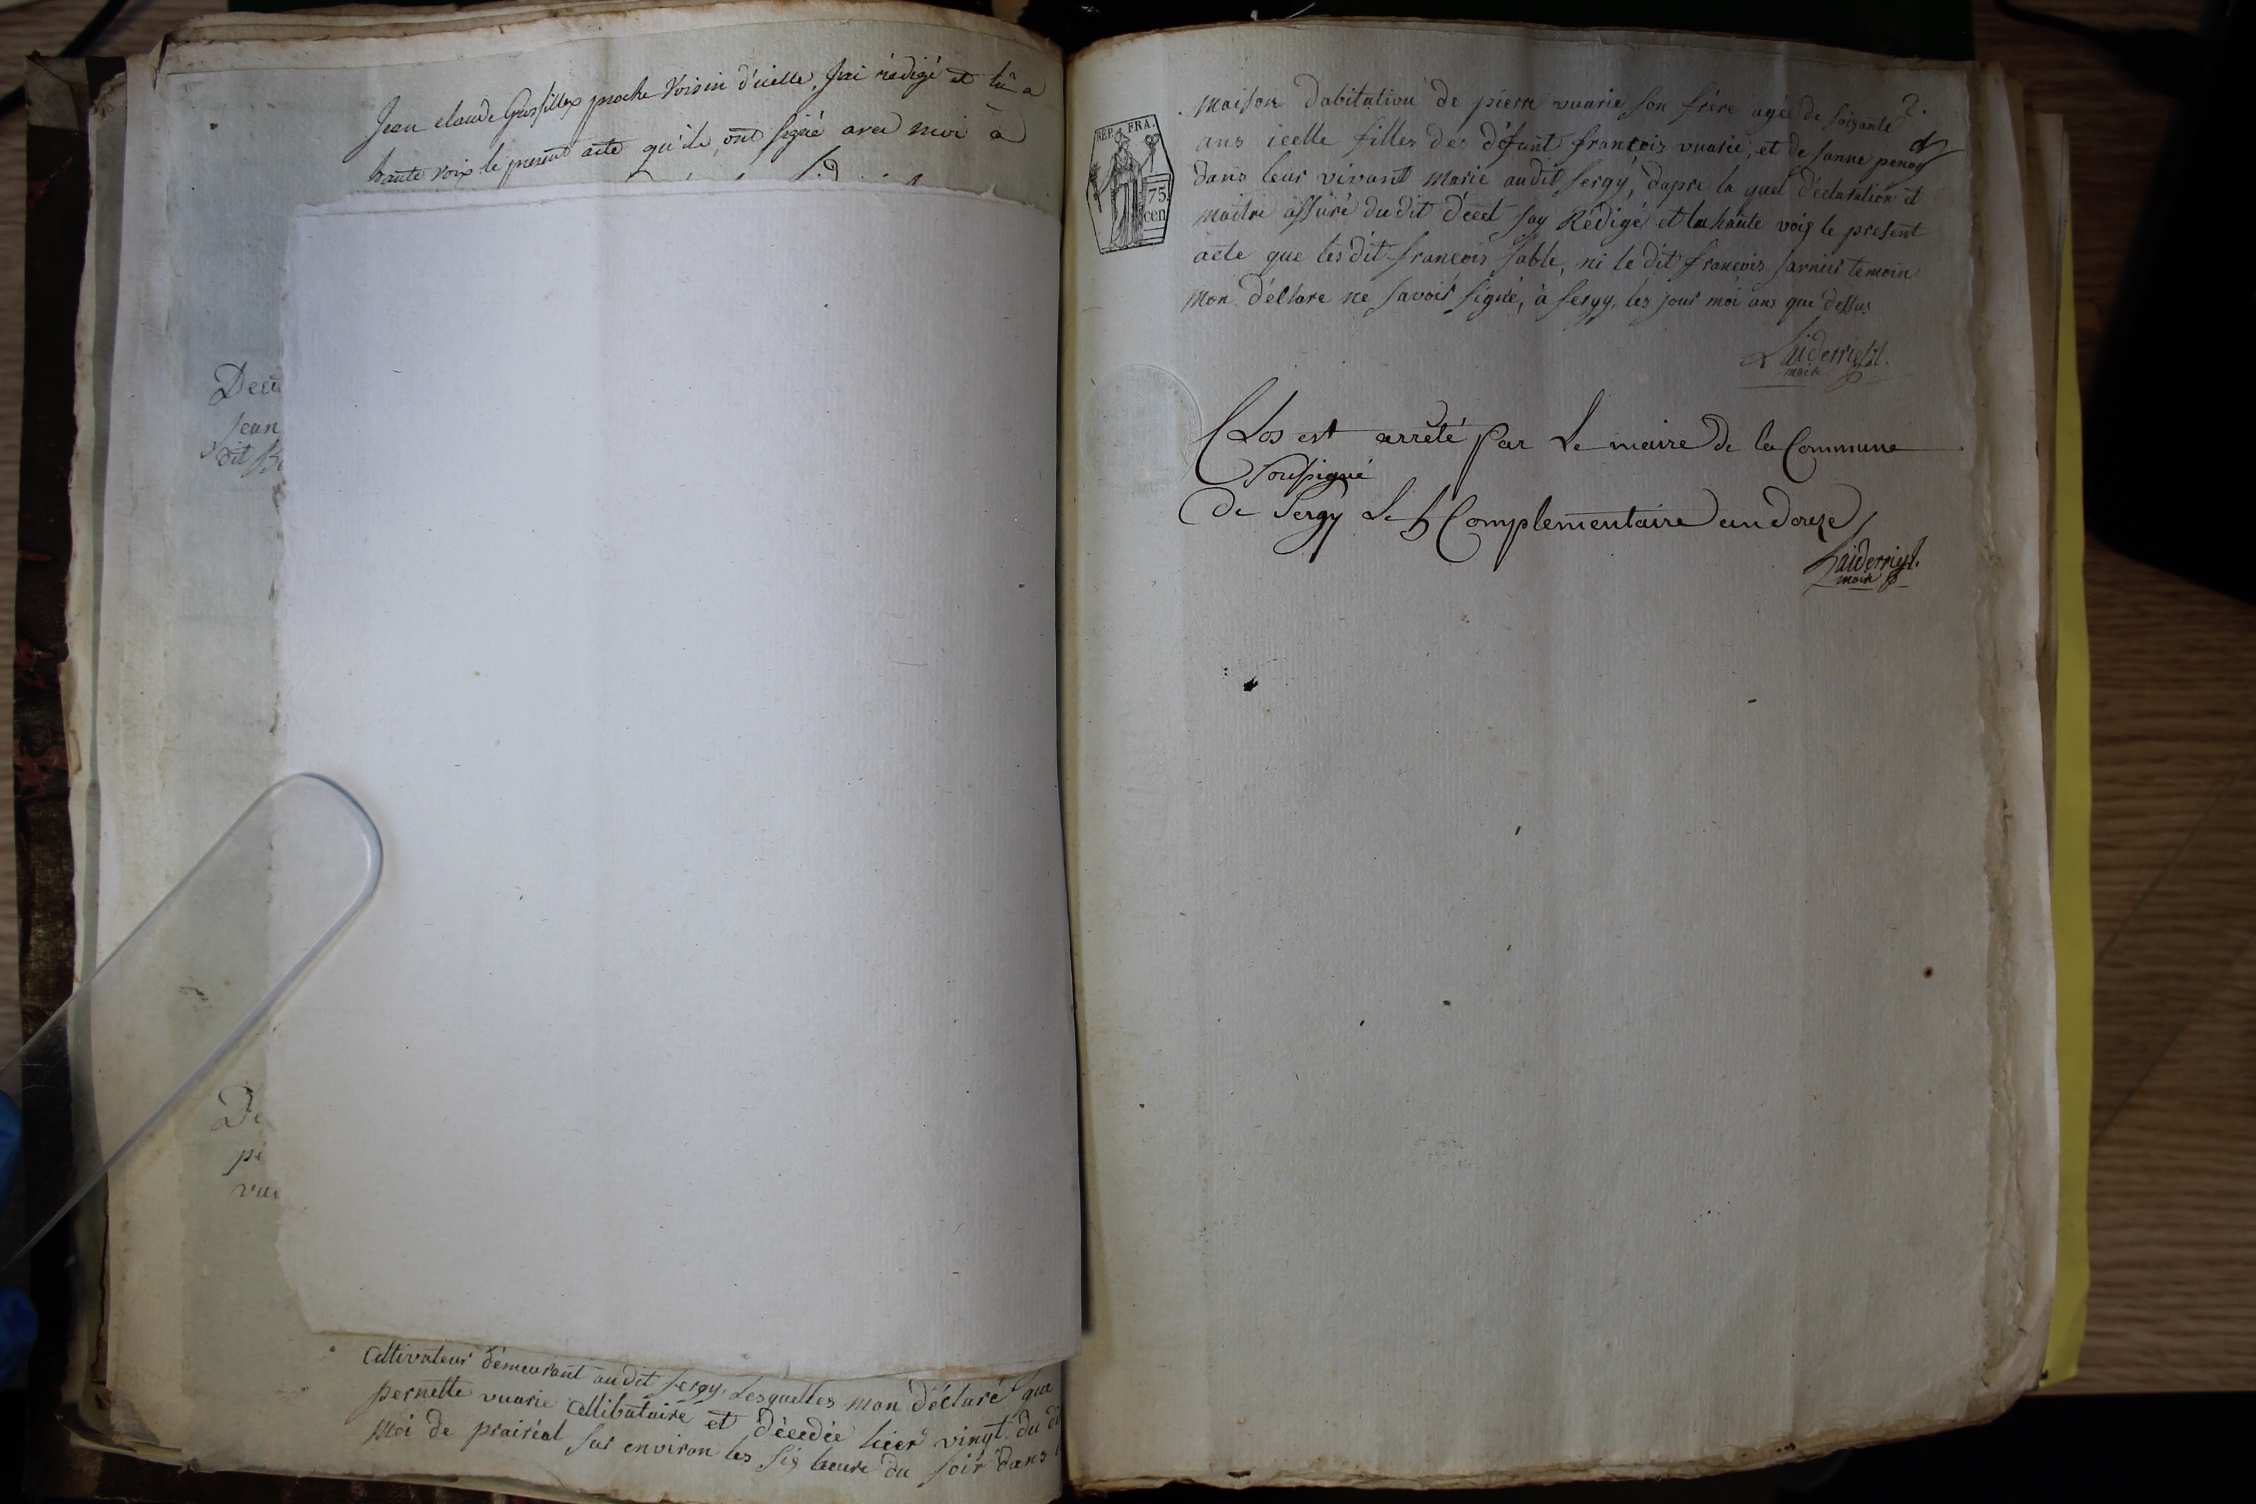 Jean claude Grosfillex proche Voisin d'icelle, J'ai rédigé et lû a
haute voix le present acte qu'ils ont signé avec moi à
Décè
Jean
dit B
De
pe
vua
Cultivateur démeurant audit sergy. Lesquelles mon déclaré que
pernette vuarie cellibataire et décedée hier vingt du dit
moi de prairéal sur environ les sis heure du soir dans
2.
maison dabitation de pierre vuarie son frére agée de soisante
ans icelle filles des défunt francois vuarie, et de Janne penay
dans leur vivant marie audit sergy, dapre la quel déclaration et
maître assuré dudit décet Jay Rédigé et lu haute vois le present
acte que lesdit francois fable, ni le dit francois Jarnier temoin
mon déclare ne savoir signé, à sergy, les jour moi ans que dessus
maire
REP. FRA.
75
cen
Clos est arrêté par Le maire de la Commune
soussigné
de Sergy Le 5 Complementaire an douze
maire